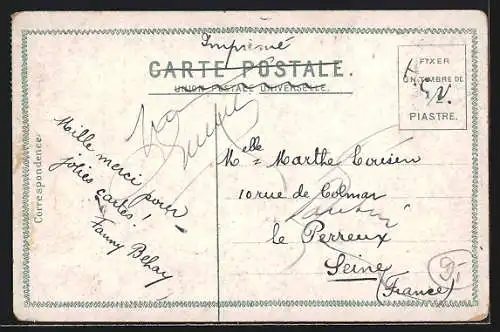 Imprimé
CARTE POSTALE.
UNION POSTALE UNIVERSELLE.
FIXER
UN TIMBRE DE
PIASTRE.
Correspondence
Mille merci pour
jolies cartes!
Fanny Behar
Melle Marthe
10 rue de Colmar
le Perreux
Seine
(France)